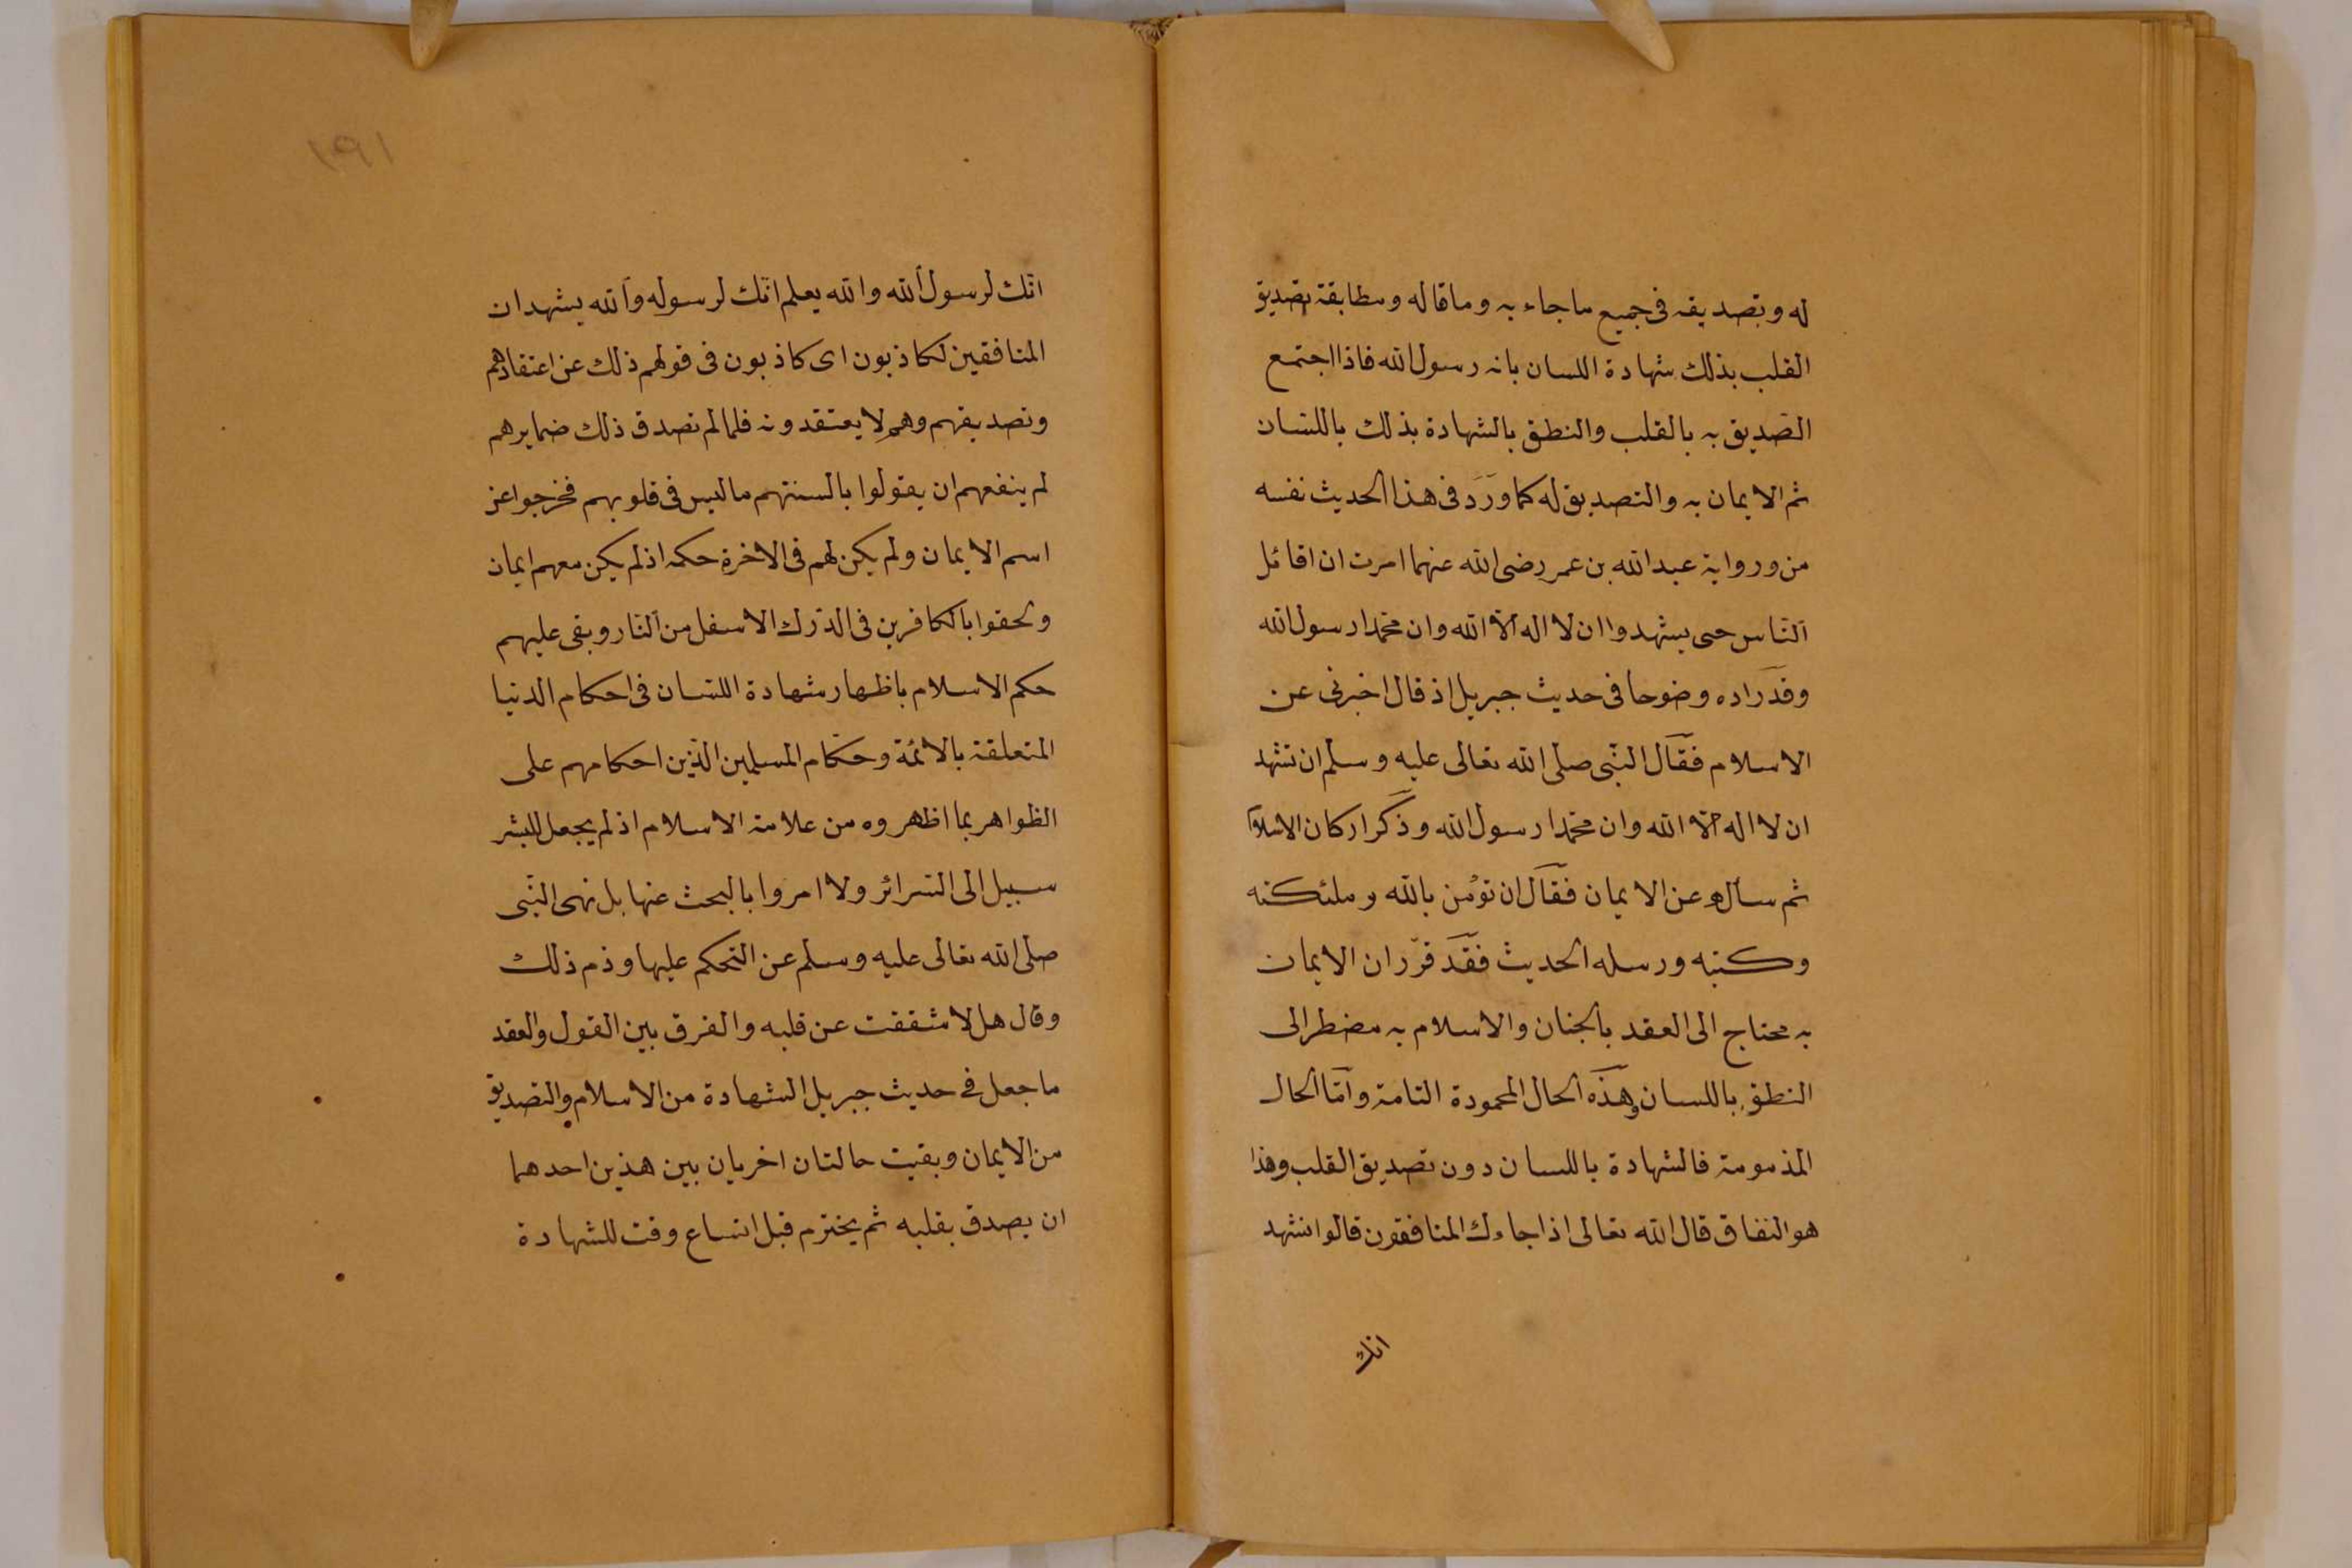 له وتصديقه فى جميع ما جاء به وما قاله ومطابقة تصديق
القلب بذلك شهادة اللسان بانه رسول الله فاذا اجتمع
التصديق به بالقلب والنطق بالشهادة بذلك باللسان
ثم الايمان به والتصديق له كما ورد فى هذا الحديث نفسه
من ورواية عبد الله بن عمر رضى الله عنهما امرت ان اقاتل
الناس حتى يشهدوا ان لا اله الا الله وان محمدا رسول الله
وقد زاده وضوحا فى حديث جبريل اذ قال اخبرنى عن
الاسلام فقال النبى صلى الله تعالى عليه وسلم ان تشهد
ان لا اله الا الله وان محمدا رسول الله وذكر اركان الاسلام
ثم سأله عن الايمان فقال ان تؤمن بالله وملئكته
وكتبه ورسله الحديث فقد قرّر ان الايمان
به محتاج الى العقد بالجنان والاسلام به مضطر الى
النطق باللسان وهذه الحال المحمودة التامة وامّا الحال
المذمومة فالشهادة باللسان دون تصديق القلب وهذا
هو النفاق قال الله تعالى اذا جاءك المنافقون قالوا نشهد
انك
١٩١
انّك لرسول الله والله يعلم انّك لرسوله والله يشهد ان
المنافقين لكاذبون اى كاذبون فى قولهم ذلك عن اعتقادهم
وتصديقهم وهم لا يعتقدونه فلما لم تصدق ذلك ضمايرهم
لم ينفعهم ان يقولوا بالسنتهم ما ليس فى قلوبهم فخرجوا عن
اسم الايمان ولم يكن لهم فى الاخرة حكمه اذ لم يكن معهم ايمان
ولحقوا بالكافرين فى الدّرك الاسفل من النّار وبقى عليهم
حكم الاسلام باظهار شهادة اللسان فى احكام الدنيا
المتعلقة بالائمّة وحكّام المسلمين الّذين احكامهم على
الظواهر بما اظهروه من علامة الاسلام اذ لم يجعل للبشر
سبيل الى السّرائر ولا امروا بالبحث عنها بل نهى النّبى
صلى الله تعالى عليه وسلم عن التحكم عليها وذم ذلك
وقال هل لا شققت عن قلبه والفرق بين القول والعقد
ما جعل فى حديث جبريل الشهادة من الاسلام والتصديق
من الايمان وبقيت حالتان اخريان بين هذين احدهما
ان يصدق بقلبه ثم يخترم قبل اتساع وقت للشهادة